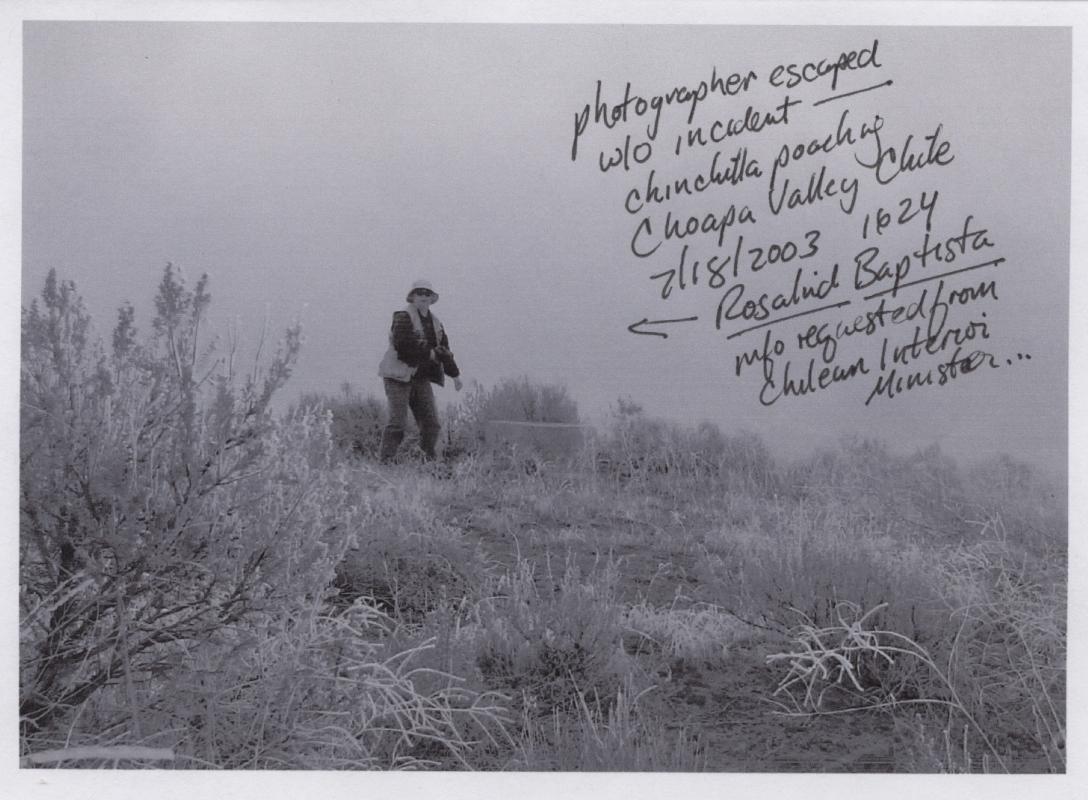 photographer escaped
w/o incident
chinchilla poaching
Choapa Valley Chile
7/18/2003 1624
← Rosalind Baptista
info requested from
Chilean Interior
Minister...